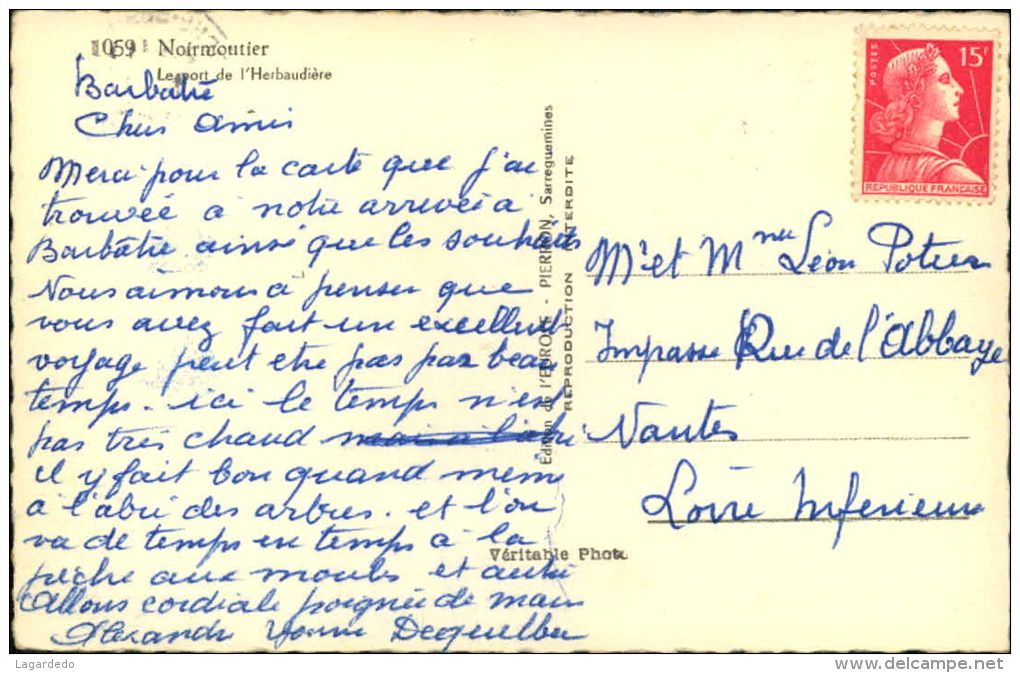 1059 Noirmoutier
Le port de l'Herbaudière
Barbatre
Chers Amis
Merci pour la carte que j'ai
trouvée à notre arrivée à
Barbâtre ainsi que les souhaits
Nous aimons à penser que
vous avez fait un excellent
voyage peut etre pas par beau
temps. ici le temps n'est
pas très chaud
il y fait bon quand meme
à l'abri des arbres. et l'on
va de temps en temps à la
pêche aux moules et autre
Allons cordiale poignée de main
Alexandre Yvonne
Edition de l'EUROPE - PIERRON, Sarreguemines
REPRODUCTION INTERDITE
Véritable Photo
POSTES
15F
REPUBLIQUE FRANÇAISE
Mr et Mme Léon Potier
Impasse Rue de l'Abbaye
Nantes
Loire Inferieure
Lagardedo
http://www.delcampe.net